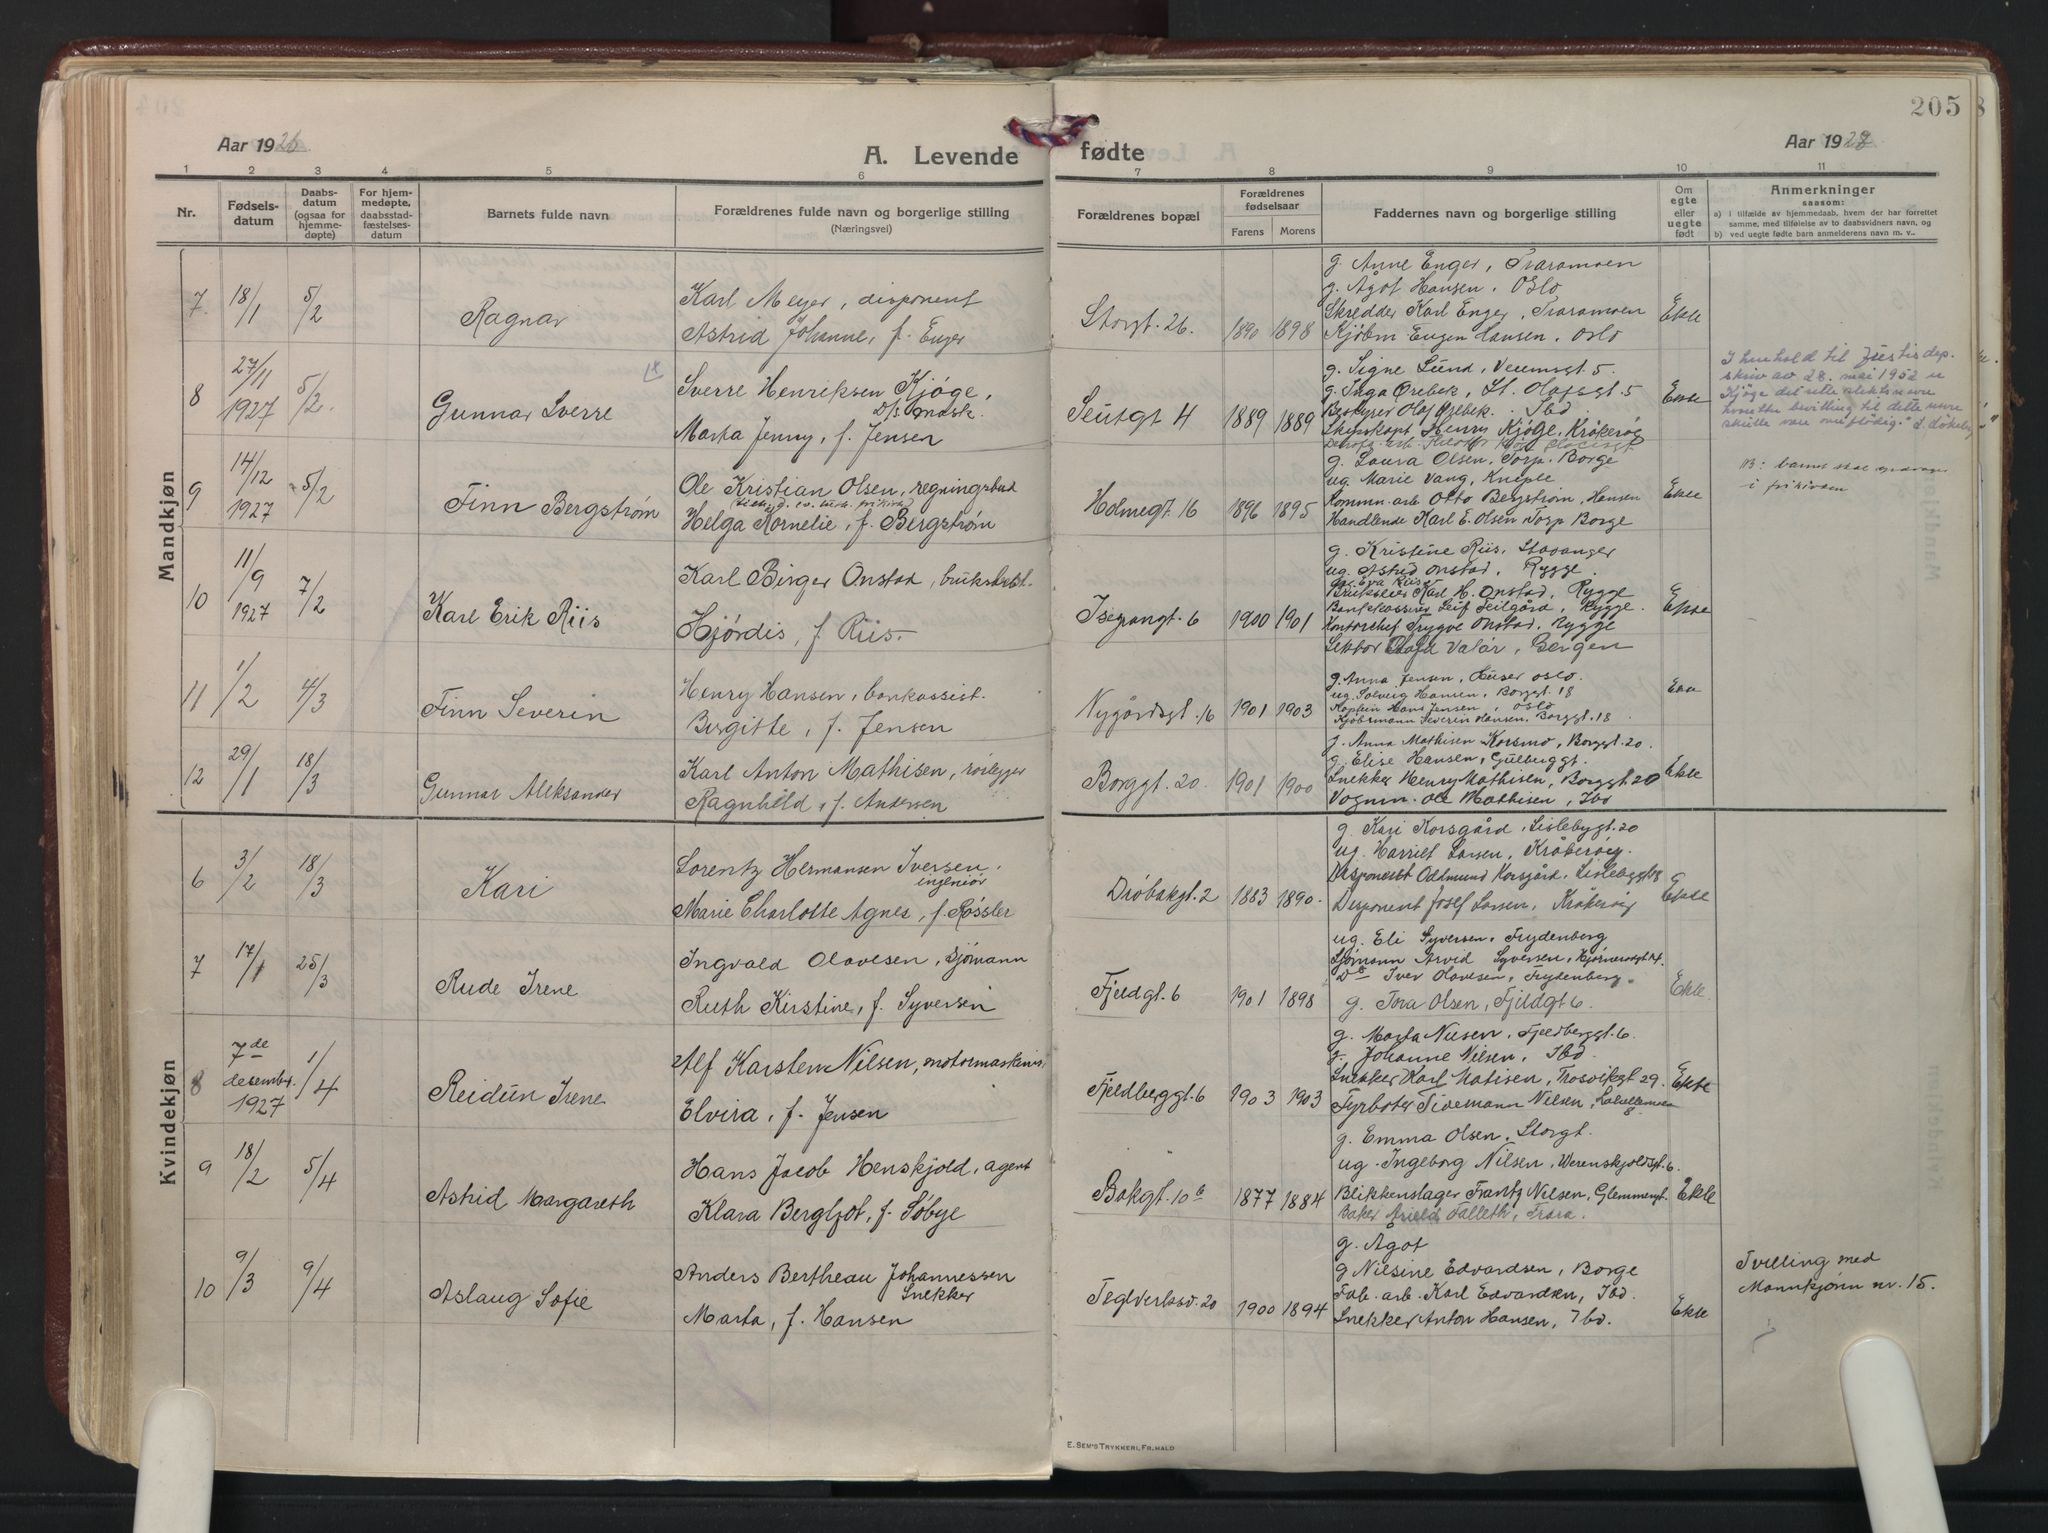 205
Aar 1928
A. Levende fødte
Aar 1928
1 2 3 4 5 6 7 8 9 10 11
Nr.
Fødselsdatum
Daabsdatum (ogsaa for hjemmedøpte)
For hjemmedøpte, daabsstadfæstelsesdatum
Barnets fulde navn
Forældrenes fulde navn og borgerlige stilling
(Næringsvei)
Forældrenes bopæl
Forældrenes fødselsaar
Farens Morens
Faddernes navn og borgerlige stilling
Om egte eller uegte født
Anmerkninger
saasom:
a) i tilfælde av hjemmedaab, hvem der har forrettet samme, med tilføielse av to daabsvidners navn, og
b) ved uegte fødte barn anmelderens navn m. v..
Mandkjøn
7 18/1 5/2 Ragnar
Karl Meyer, disponent
Astrid Johanne, f. Enger
Storgt. 26. 1890 1898
g. Anne Enger, Traramoen
g. Ågot Hansen, Oslo
Skredder Karl Enger, Traramoen
Kjøbm Eugen Hansen, Oslo
Ekte
8 27/11 1927 5/2 Gunnar Sverre
Sverre Henriksen Kjøge,
D/S mask.
Marta Jenny, f. Jensen
Seutgt 4 1889 1889
g. Signe Lund, Veumsgt 5.
g. Inga Ørebek, St. Olafsgt. 5
Bestyrer Olaf Ørebek. Ibd
Skipskapt Henry Kjøge, Kråkerøy
Ekte
I henhold til Justisdep.
skriv av 28. mai 1952 er
Kjøge det rette slektsnavn
hvorfor bevilling til dette navn
skulle være overflødig."
9 14/12 1927 5/2 Finn Bergstrøm
Ole Kristian Olsen, regningsbud
Helga Kornelie, f. Bergstrøm
Holmegt 16 1896 1895
g. Laura Olsen, Torp. Borge
ug. Marie Vang, Kniple
Kommn. arb Otto Bergstrøm, Hansen
Handlende Karl E. Olsen Torp Borge
Ekte
NB: barnet skal
i frikirken
10 11/9 1927 7/2 Karl Erik Riis
Karl Birger Onstad, buksbest.
Hjørdis, f Riis.
Isegrangt. 6 1900 1901
g. Kristine Riis, Stavanger
ug. Astrid Onstad, Rygge.
Brukseier Karl H. Onstad, Rygge
Bankkasserer Leif Teilgård, Rygge.
Kontorchef Trygve Onstad, Rygge
Lektor Olaf Valør, Bergen
Ekte
11 1/2 4/3 Finn Severin
Henry Hansen, bankassist.
Birgitte, f. Jensen
Nygårdsgt. 16 1901 1903
g. Anna Jensen, Huser Oslo.
ug. Solveig Hansen, Borggt. 18
Kaptein Hans Jensen, Oslo
Kjøbmann Severin Hansen. Borggt. 18
12 29/1 18/3 Gunnar Aleksander
Karl Anton Mathisen, rørlegger
Ragnhild, f. Andersen
Borggt. 20. 1901 1900
g. Anna Mathisen Korsmo, Borggt. 20.
g. Elise Hansen, Gulberggt.
Snekker Henry Mathisen, Borggt. 20
Vognm. Ole Mathisen, Ibd
Ekte
Kvindekjøn
6 3/2 18/3 Kari
Lorentz Hermansen Iversen,
ingeniør
Marie Charlotte Agnes, f. Røssler
Drøbakgt. 2 1883 1890
g. Kari Korsgård, Lislebygt. 20
ug. Harriet Larsen, Kråkerøy.
Disponent Oddmund Korsgård, Lislebygt 18
Disponent Josef Larsen, Kråkerøy
Ekte
7 17/1 25/3 Rude Irene
Ingvald Olavesen, sjømann
Ruth Kirstine, f. Syversen
Fjeldgt. 6 1901 1898
ug. Eli Syversen, Frydenberg
Sjømann Arvid Syversen, Bjørnersgt 14.
Do Iver Olavesen, Frydenberg.
g. Tora Olsen, Fjeldgt 6.
Ekte.
8 7de desembr. 1927 1/4 Reidun Irene
Alf Karsten Nilsen, motormaskinis
Elvira, f. Jensen
Fjeldberggt. 6 1903 1903
g. Marta Nilsen, Fjeldberggt. 6.
g. Johanne Nilsen, Ibd.
Snekker Karl Matisen, Trosvikgt 29.
Fyrbøter Tidemann Nilsen,
Ekte
9 18/2 5/4 Astrid Margareth
Hans Jacob Henskjold, agent
Klara Bergljot, f. Søbye
Bakgt. 10b 1877 1884
g. Emma Olsen, Storgt.
ug. Ingeborg Nilsen, Werenskjoldsgt. 6.
Blikkenslager Frantz Nilsen, Glemmengt.
Baker Arield Falleth, Trara.
Ekte
10 9/3 9/4 Aslaug Sofie
Anders Bertheau Johannessen
Snekker
Marta, f. Hansen
Teglverksv. 20 1900 1894
g. Agot
g Nilsine Edvardsen, Borge
Fab. arb. Karl Edvardsen, Ibd.
Snekker Anton Hansen, Ibd.
Ekte
Tvilling med
Mannkjønn nr. 15.
E. SEM'S TRYKKERI, FR.HALD